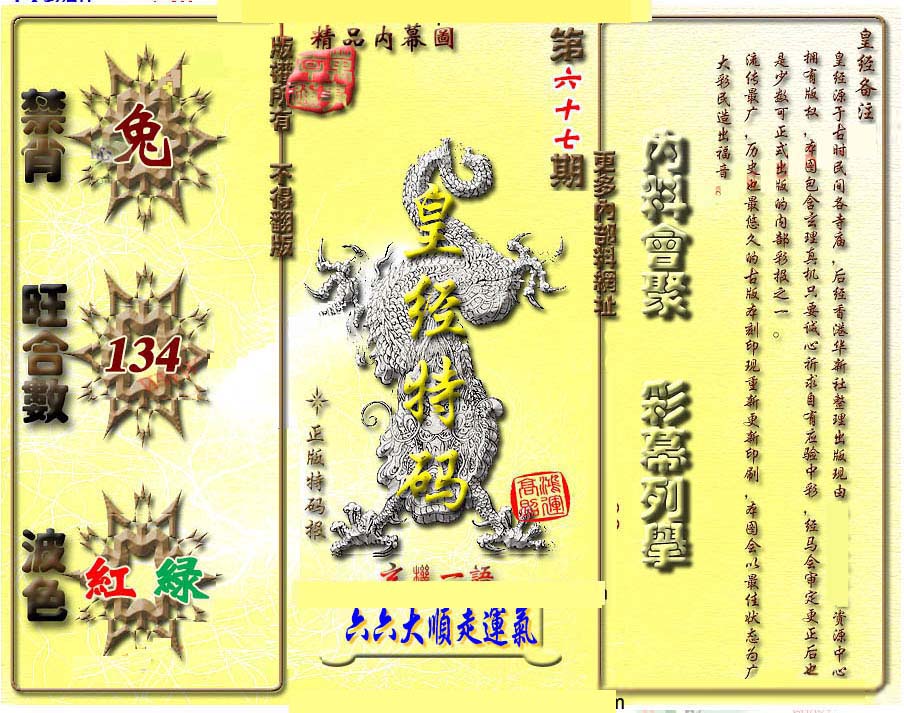 精品内幕圖
第六十七期
版權所有 不得翻版
更多内部料網址
禁肖
兔
旺合數
134
波色
紅 緑
皇经特码
正版特码报
鸿運高照
玄機一語
六六大順走運氣
内料會聚
彩幕列擧
皇经备注
皇经源于古时民间各寺庙，后经香港华新社整理出版现由
资源中心
拥有版权，本图包含玄理真机只要诚心祈求自有应验中彩，经马会审定更正后也
是少数可正式出版的内部彩报之一。
流传最广，历史也最悠久的古版本刻印现重新更新印刷，本图会以最佳状态为广
大彩民造出福音
n